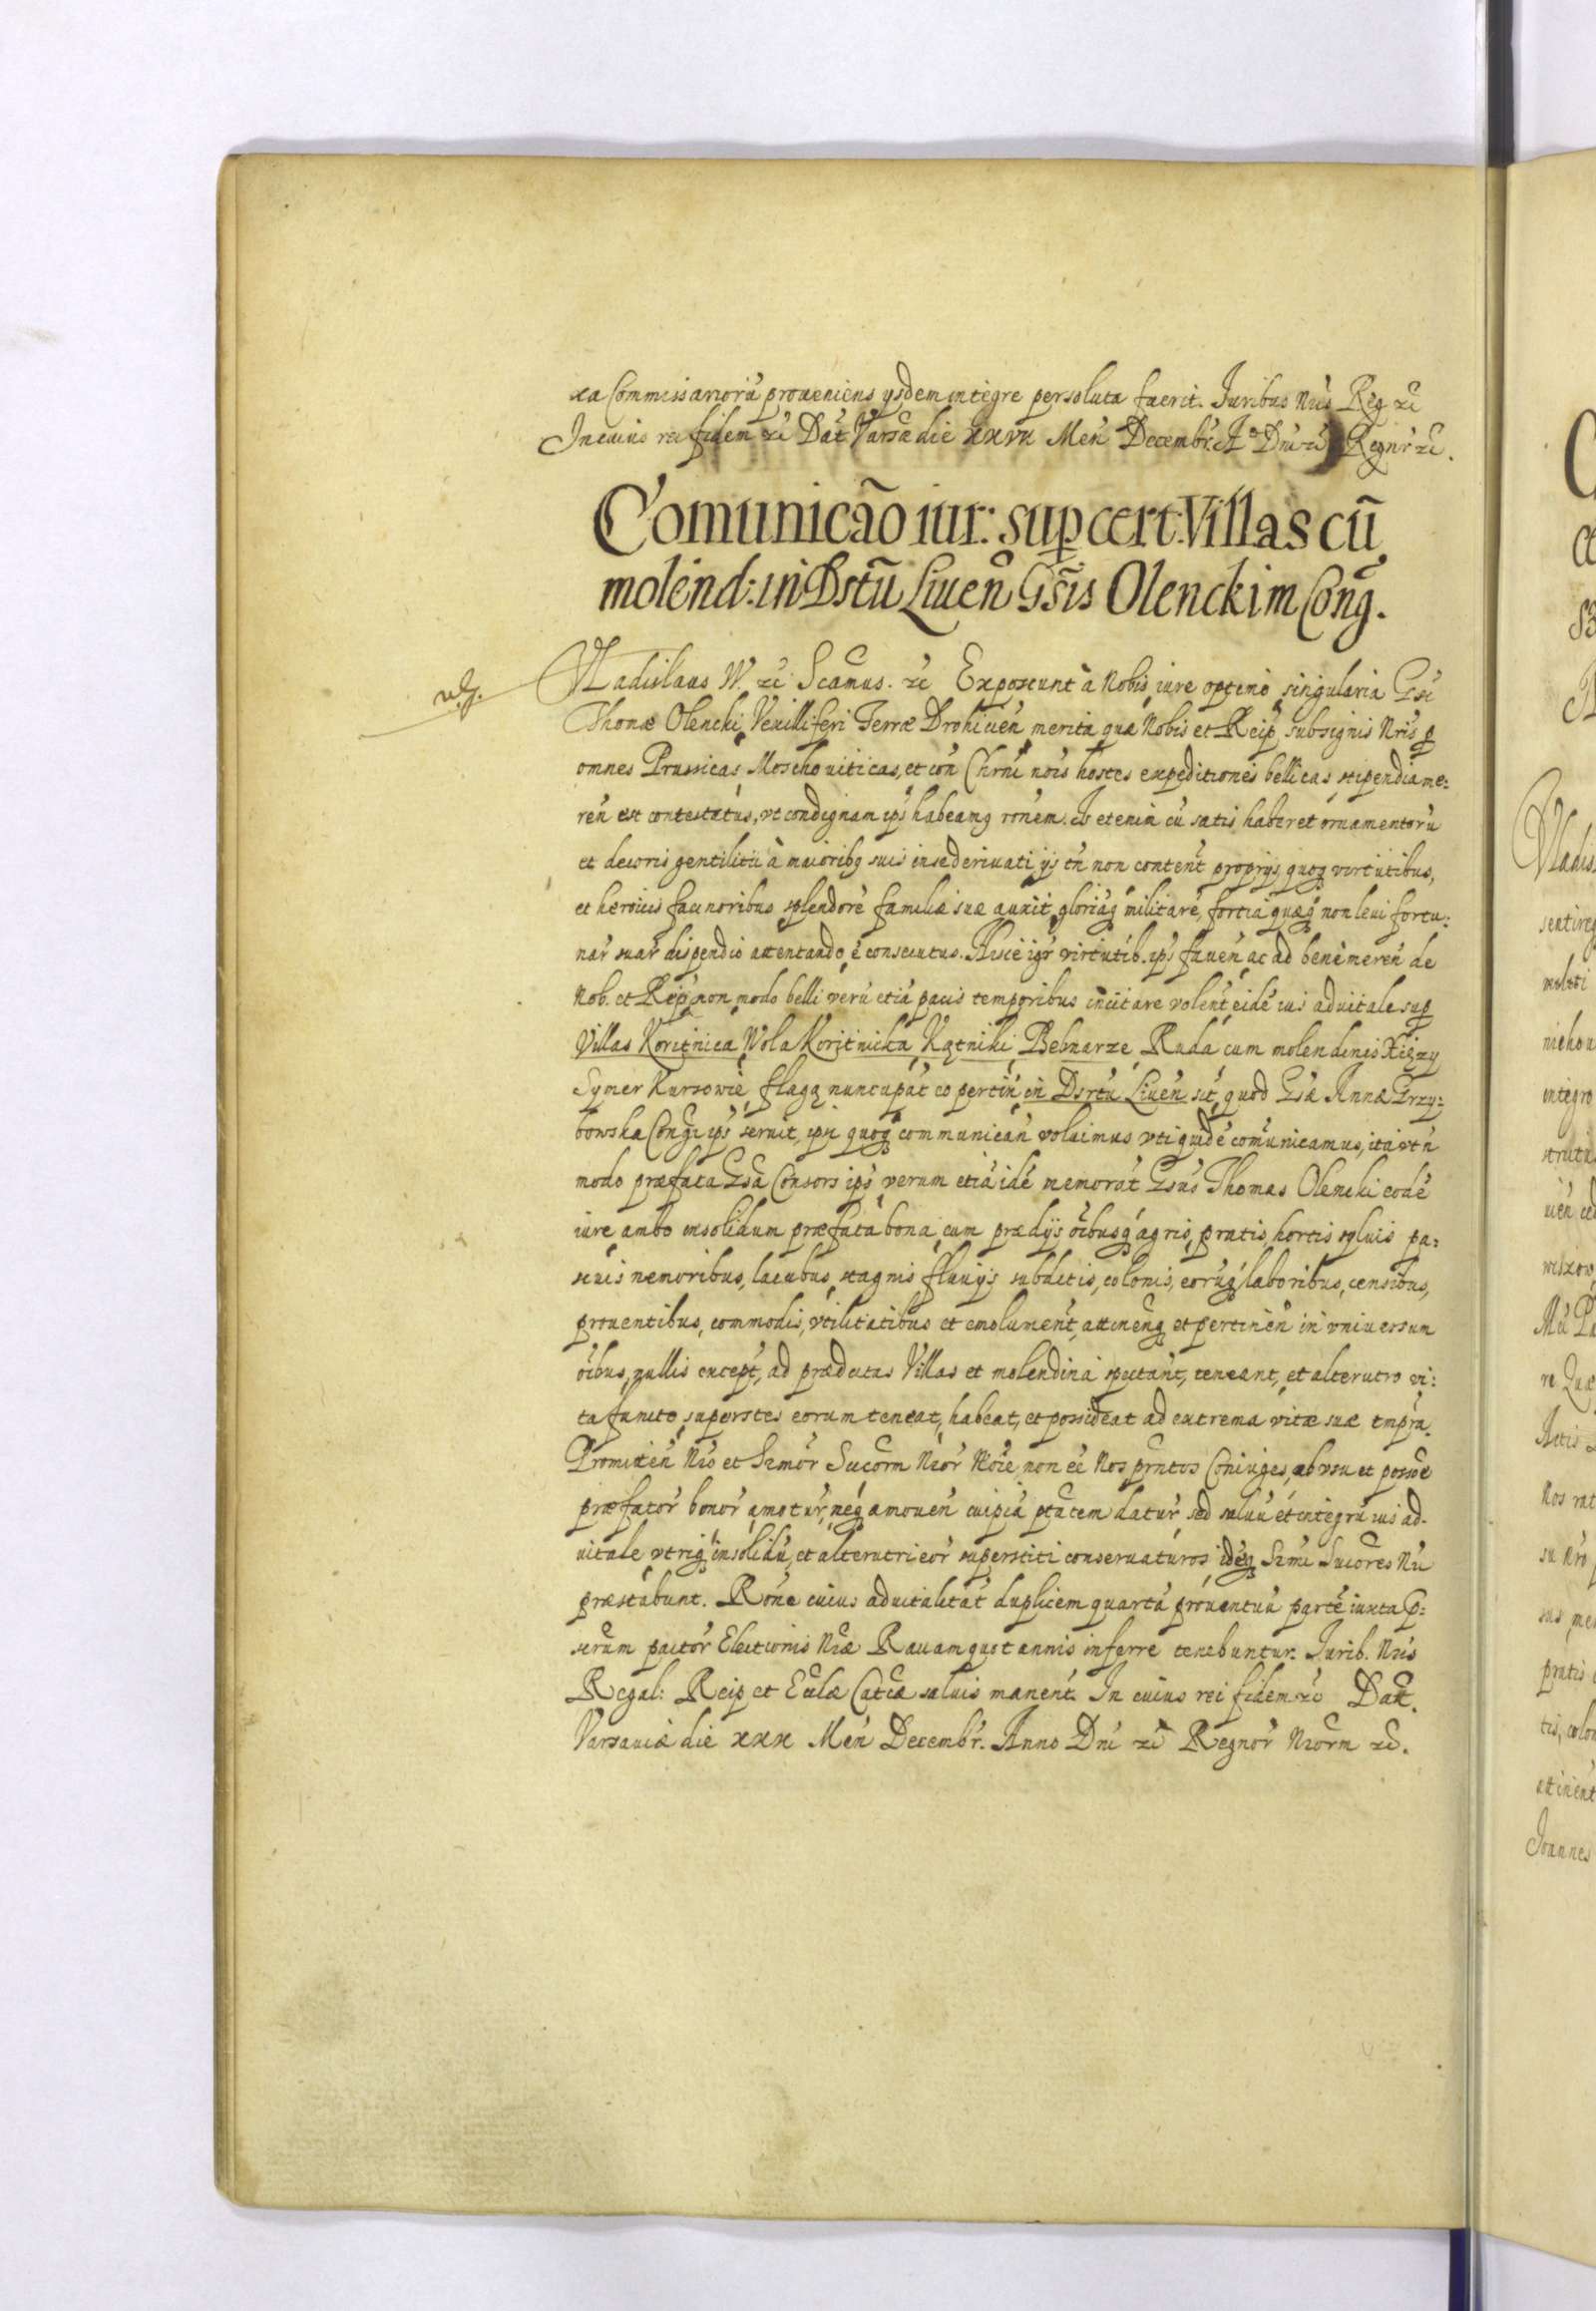 xa Commissariorũ proueniens ysdem integre persoluta fuerit. Juribus Nr̃is Reg. zc̃
In cuius rei fidem zc̃ Dat̃ Varsã die XXVII Meñ Decembr̃. Aº Dñi zc̃ Regnr̃ zc̃.
Comunicão iur: sup cert. Villas cũ
molend: in Dstũ Liueñ Gs̃is Olenckim Cong.
Vladislaus IV. zc̃ Scãmus. zc̃ Exposcunt à Nobis iure optimo singularia Gsi
Thomæ Olencki Vexilliferi Terræ Drohicen̄ merita quæ Nobis et Reip. sub signis Nr̃is p
omnes Prussicas Moschouiticas, et con̄ Chrni nois hostes expeditiones bellicas stipendia me:
ren̄ est contestatus, vt condignam ips̄ habeamg ronem. Is etenim cũ satis haberet ornamentorũ
et decoris gentilitii à maioribg suis in se deriuati, ys tn̄ non content̄ proprys quog virtutibus,
et heroicis facinoribus splendorē familiæ suæ auxit, gloriāg militarē, fortia quæg non leui fortu:
nar̄ suar̄ dispendio attentando ē consecutus. Hisce igr̄ virtutib. ips̄ fauen̄ ac ad benè meren̄ de
Nob. et Rep. non modo belli verũ etiā pacis temporibus incitare volent̄ eidē ius aduitale sup
Villas Koritnica Wola Koritnicka Kątniki Bednarze Ruda cum molendinis Xięzy
Symer Kursowie flagą nuncupat̄ eo pertin̄ in Dsrtu Liuen̄ sit̄, quod Gsæ Annæ Grzy:
bowska Congi ips̄ seruit, ipsi quog communican̄ voluimus vti quidē com̄unicamus, ita vt n̄
modo præfata Gsā Consors ips̄ verum etiā idē memorat̄ Gsus Thomas Olencki eodē
iure ambo insolidum præfata bona cum prædys oībusg agris, pratis, hortis syluis pa:
scuis nemoribus, lacubus stagnis fluuys subditis, colonis, eorũg laboribus, censibus,
prouentibus, commodis, vtilitatibus et emolument̄ attinen̄g et pertinen̄ in vniuersum
oībus, nullis except̄, ad prædictas Villas et molendina spectant̄, teneant, et alterutro vi:
ta functo superstes eorum teneat, habeat, et possideat ad extrema vitæ suæ tmpra.
Promitten̄ Nr̃o et Srmor̄ Succorm Nror̄ Noie non eē Nos prn̄tos Coniuges, ab vsu et posse
præfator̄ bonor̄ amotur̄, neg amouen̄ cuipiā ptatem datur̄ sed saluũ et integrũ ius ad-
uitale vtrig insolidũ, et alterutri eor̄ superstiti conseruaturos, idēg Srmi Succores Nri
præstabunt. Rone cuius aduitalitat̄ duplicem quartā prouentuũ partē iuxta p:
scrum pactor̄ Electionis Nræ Rauam quot annis inferre tenebuntur. Jurib. Nris
Regal: Reip et Ecclæ Catcæ saluis manent̄. In cuius rei fidem zc̃ Dat̄.
Varsauiæ die XXX Men̄ Decembr̄. Anno Dni zc̃ Regnor̄ Nrorm zc̃.